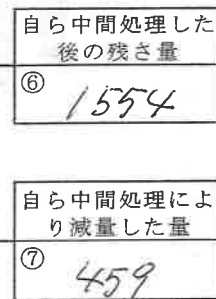 自ら中間処理した
後の残さ量
⑥
1554
自ら中間処理によ
り減量した量
⑦
459